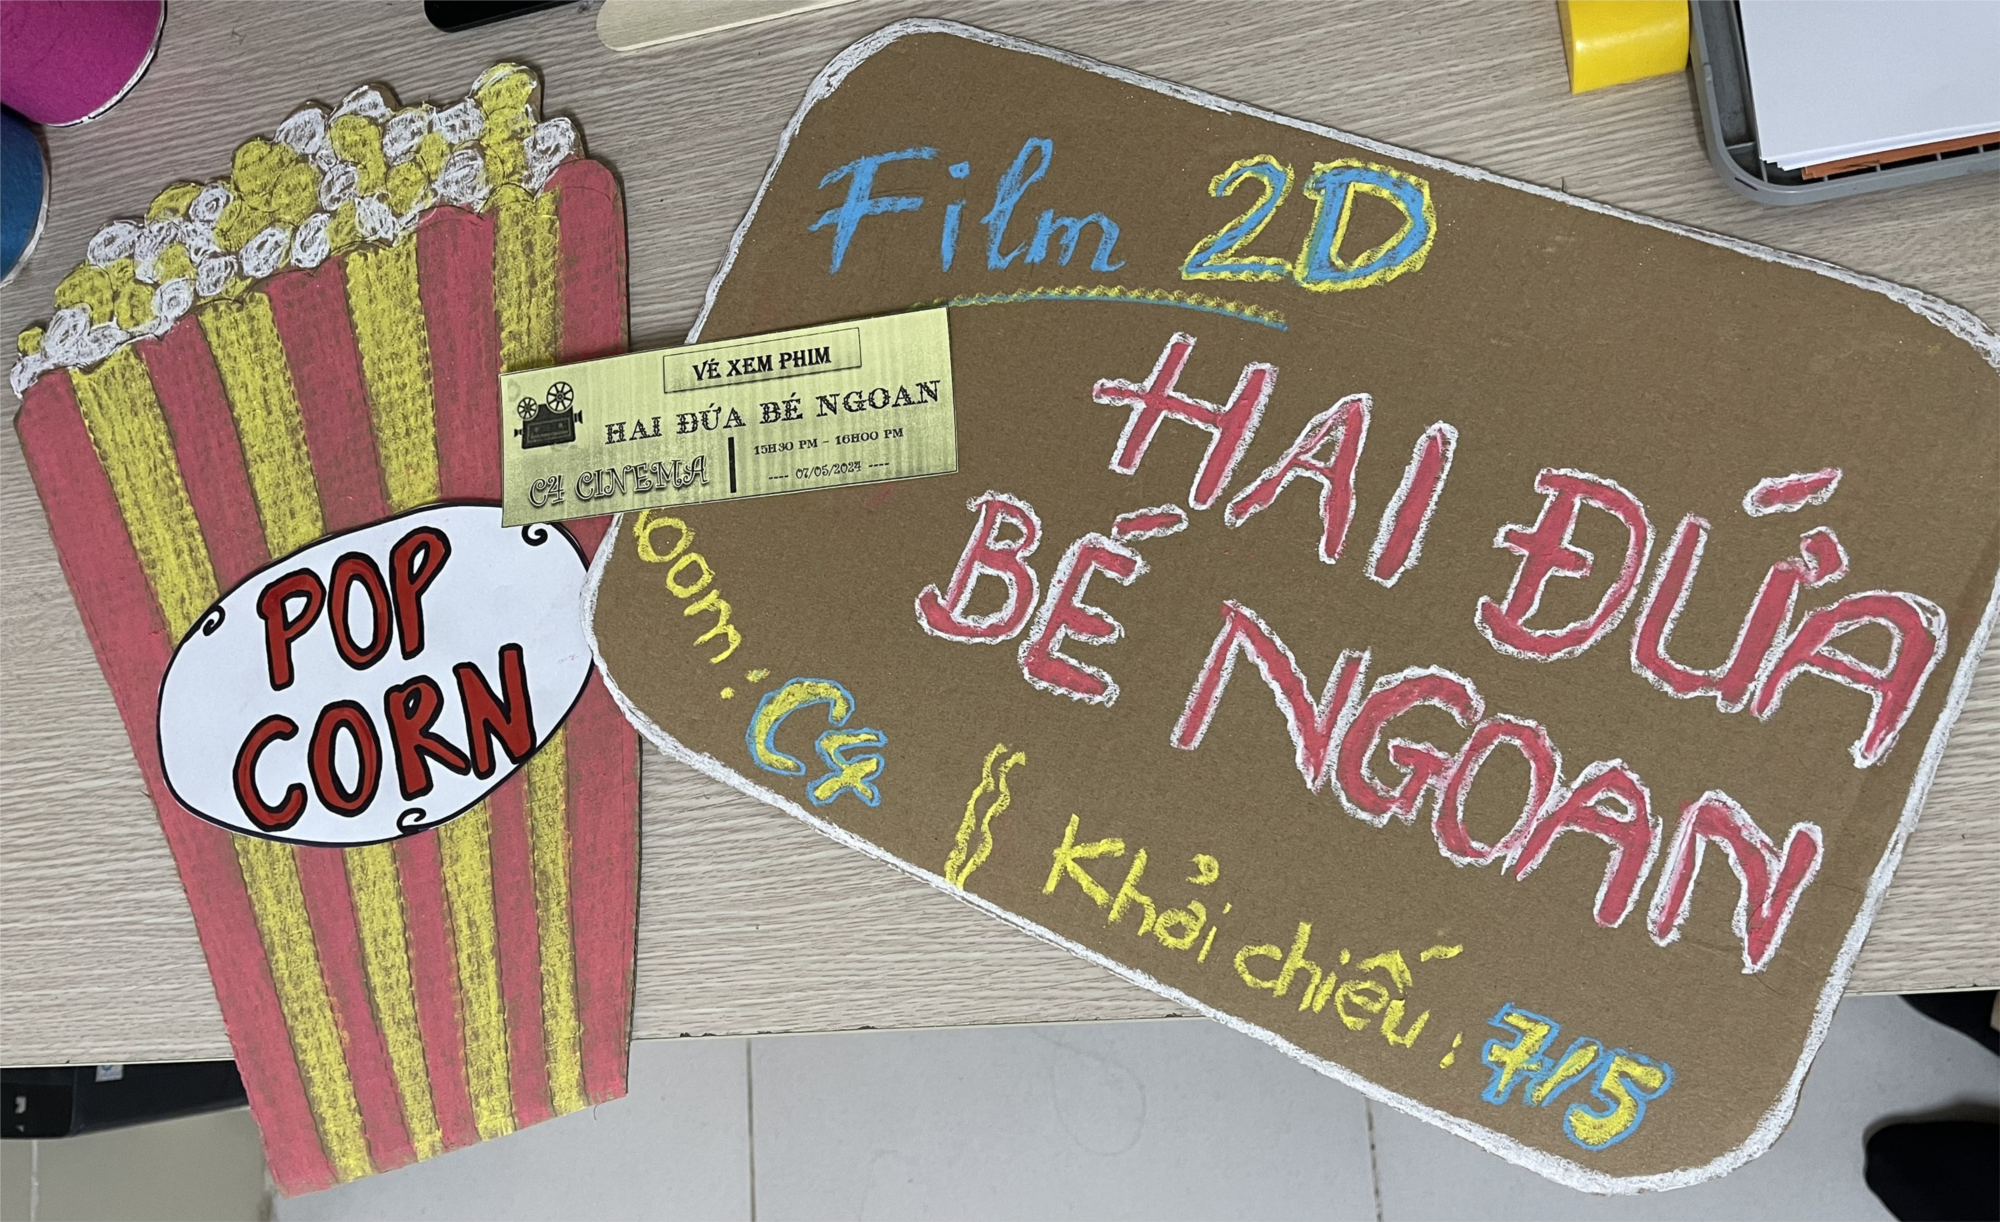 POP
CORN
VÉ XEM PHIM
HAI ĐỨA BÉ NGOAN
C4 CINEMA
15H30 PM - 16H00 PM
---- 07/05/2024 ----
Film 2D
HAI ĐỨA
BÉ NGOAN
oom: C4
Khải chiếu: 7/5